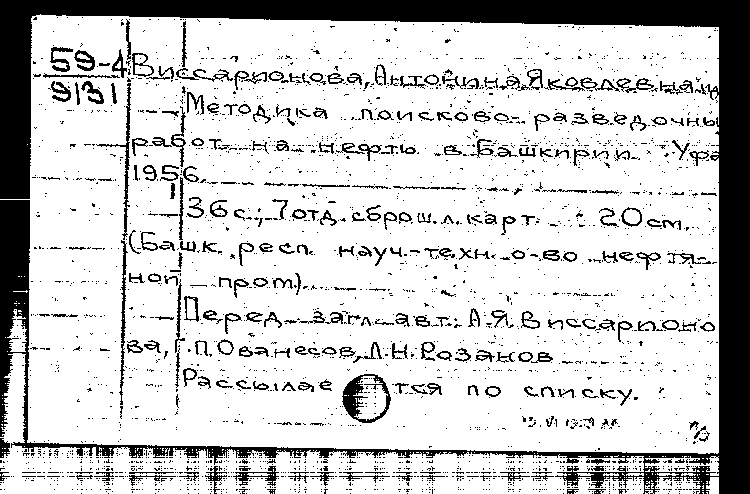 59-4 Виссарионова, Антонина Яковлевна и
9131
Методика поисково-разведочны
работ на нефть в Башкирии. Уфа
1956.
36 с.; 7 отд. сброш. л. карт. 20 см.
(Башк. респ. науч.-техн. о-во нефтя-
ной пром).
Перед загл. авт.: А.Я. Виссарионо
ва, Г.П. Ованесов, Л.Н. Розанов
Рассылае тся по списку.